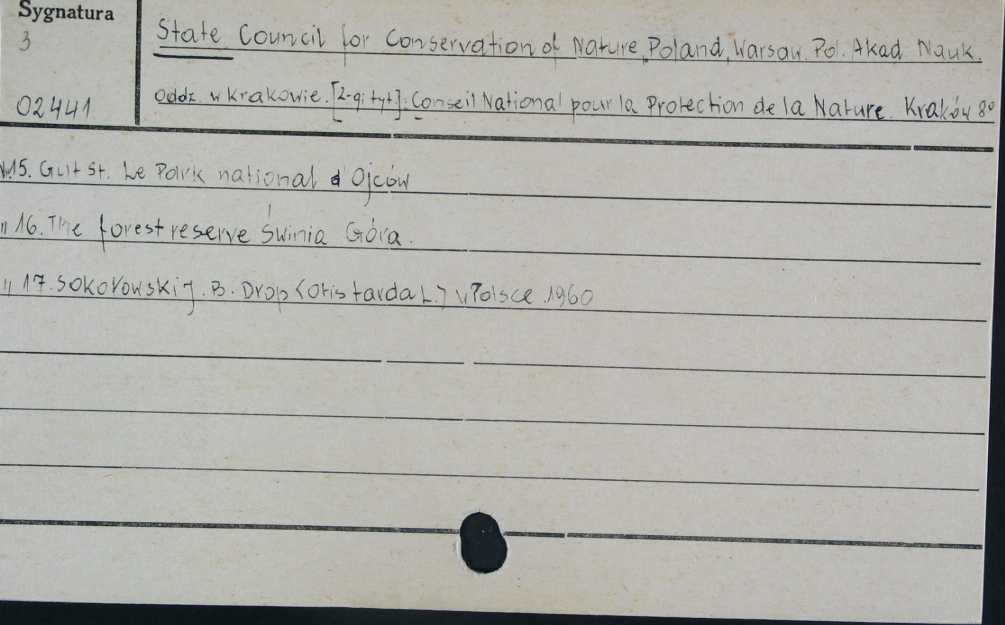 Sygnatura
3
02441
State Council for Conservation of Nature, Poland, Warsaw. Pol. Akad Nauk.
Oddz. w Krakowie. [2-gi tyt]: Conseil National pour la Protection de la Nature. Kraków 8°
15. Gutt St. Le Park national d Ojców
" 16. The forest reserve Świnia Góra.
" 17. Sokołowski J. B. Drop (Otis tarda L.) w Polsce 1960